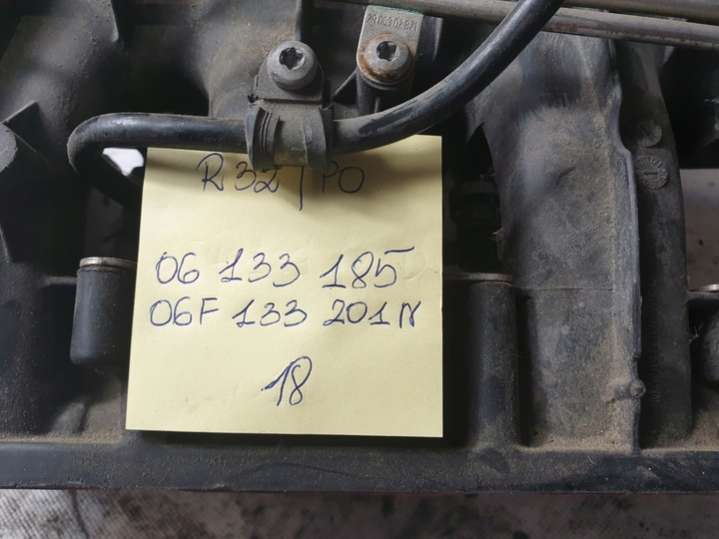 R32 TPO
06 133 185
06F 133 201N
18